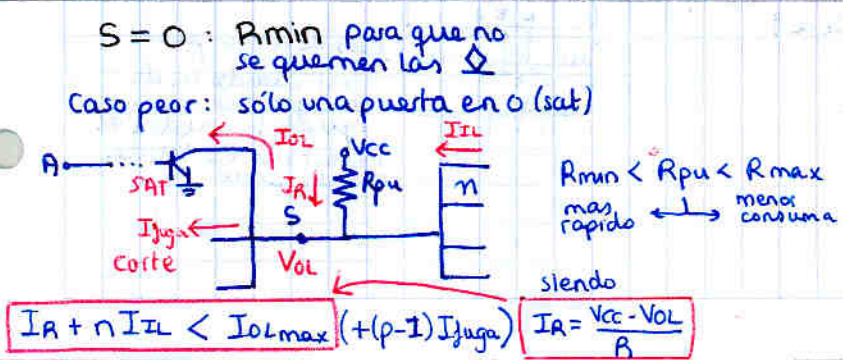 S = 0 : Rmin para que no
se quemen las ⎐
Caso peor: sólo una puerta en 0 (sat)
A ... SAT
IOL
Vcc
IIL
IR
Rpu
n
S
Ifuga
corte
VOL
Rmin < Rpu < Rmax
mas rapido ← → menor consumo
siendo
IR + n IIL < IOLmax (+(p-1) Ifuga) IR = Vcc - VOL / R